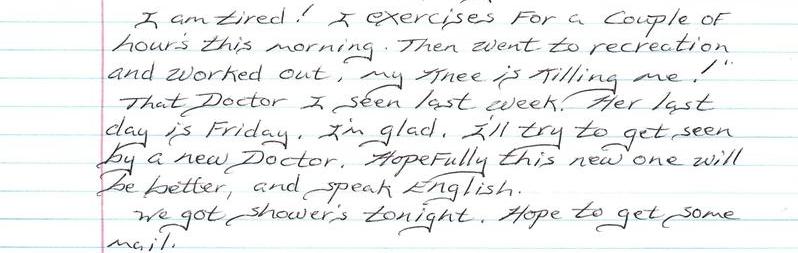 I am tired! I exercises For a Couple of
hour's this morning. Then went to recreation
and worked out, my Knee is Killing me!"
That Doctor I seen last week. Her last
day is Friday. I'm glad. I'll try to get seen
by a new Doctor. Hopefully this new one will
be better, and speak English.
We got shower's tonight. Hope to get some
mail.